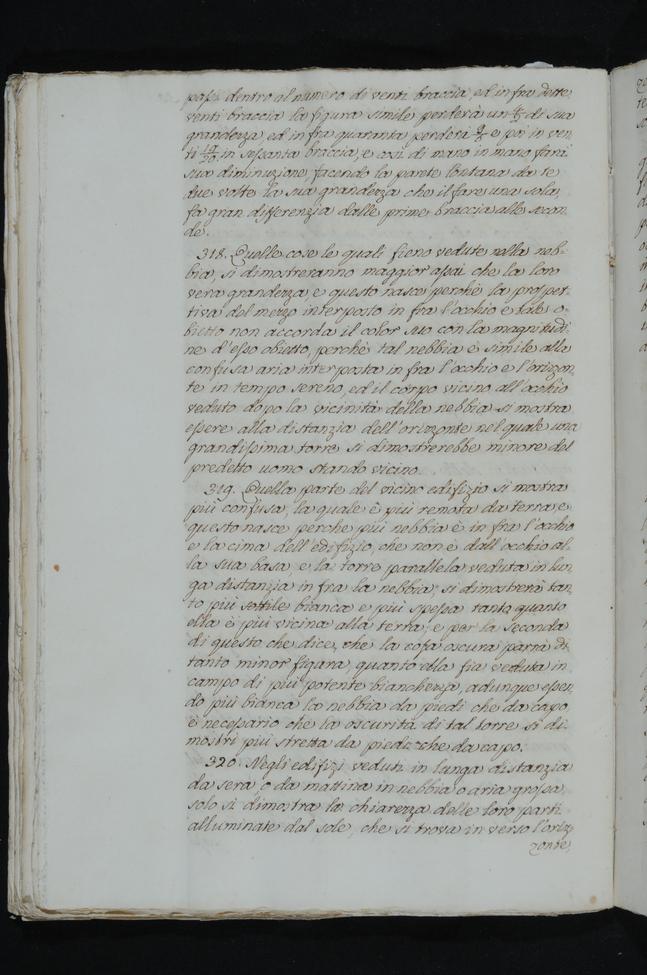 passi dentro al numero di venti braccia, ed in fra dette
venti braccia la figura simile perderà un 4/5 di sua
grandezza, ed in fra quaranta perderà e poi in ven-
ti 19/20, in sessanta braccia, e così di mano in mano farà
sua diminuzione, facendo la parete lontana da te
due volte la sua grandezza che il fare una sola,
fa gran differenzia dalle prime braccia alle secon-
de.
318. Quelle cose le quali fieno vedute nella neb-
bia, si dimostreranno maggior assai che la loro
vera grandezza, e questo nasce perchè la prospet-
tiva del mezzo interposto in fra l'occhio e tale o-
bietto non accorda il color suo con la magnitudi-
ne d'esso obietto, perchè tal nebbia è simile alla
confusa aria interposta in fra l'occhio e l'orizzon-
te in tempo sereno, ed il corpo vicino all'occhio
veduto dopo la vicinità della nebbia si mostra
essere alla distanzia dell'orizzonte nel quale una
grandissima torre si dimostrerebbe minore del
predetto uomo stando vicino.
319. Quella parte del vicino edifizio si mostra
più confusa, la quale è più remota da terra, e
questo nasce perche più nebbia è in fra l'occhio
e la cima dell'edifizio, che non è dall'occhio al-
la sua basa, e la torre parallela veduta in lun-
ga distanzia in fra la nebbia, si dimostrerà tan-
to più sottile bianca e più spessa tanto quanto
ella è più vicina alla terra, e per la seconda
di questo che dice, che la cosa oscura parrà di
tanto minor figura, quanto ella fia veduta in
campo di più potente bianchezza, adunque essen-
do più bianca la nebbia da piedi che da capo,
è necessario che la oscurità di tal torre si di-
mostri più stretta da piedi che da capo.
320. Negli edifizi veduti in lunga distanzia
da sera, o da mattina in nebbia o aria grossa,
solo si dimostra la chiarezza delle loro parti
alluminate dal sole, che si trova in verso l'oriz-
zonte,